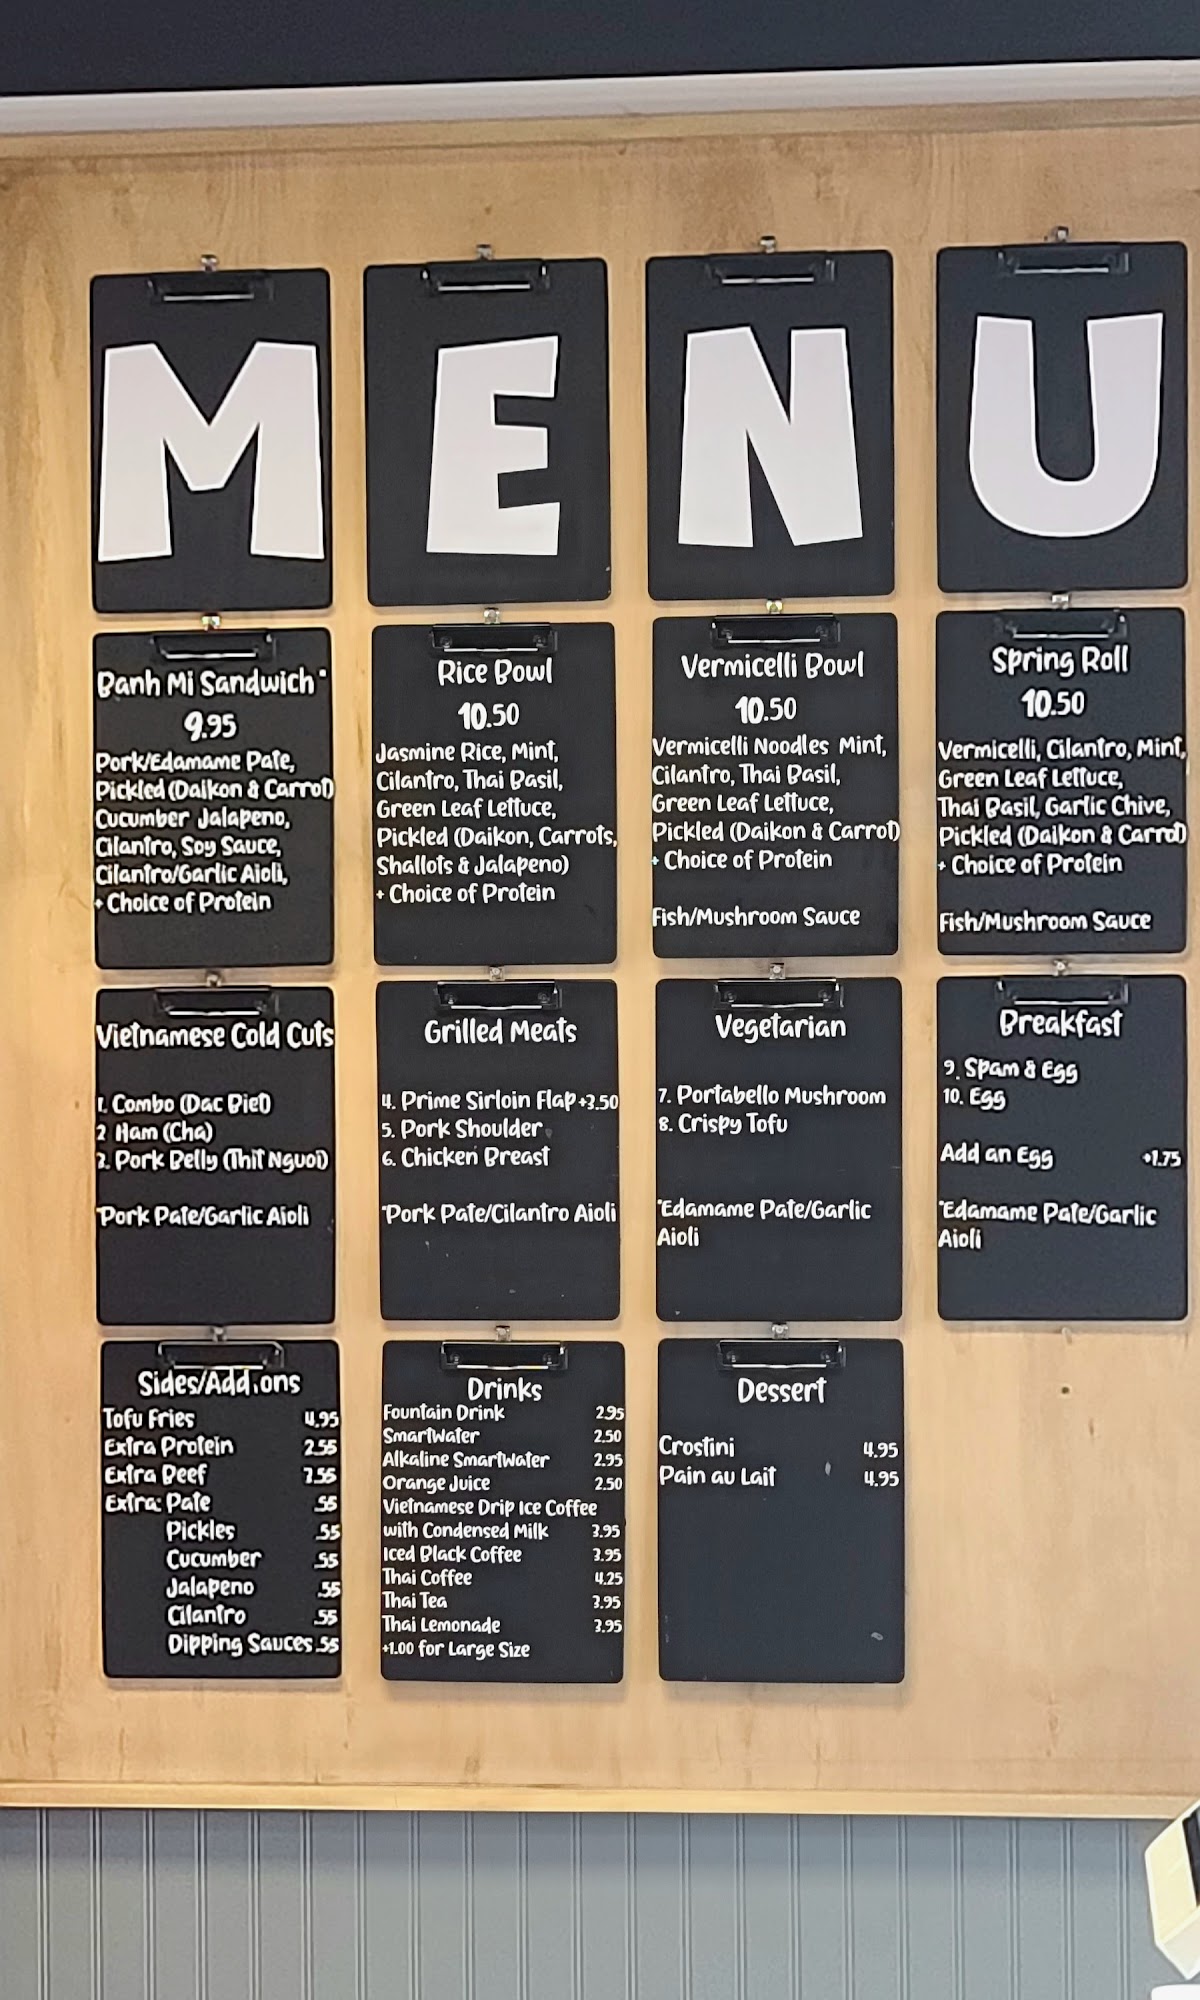 MENU
Banh Mi Sandwich*
9.95
Pork/Edamame Pate,
Pickled (Daikon & Carrot)
Cucumber Jalapeno,
Cilantro, Soy Sauce,
Cilantro/Garlic Aioli,
+ Choice of Protein
Rice Bowl
10.50
Jasmine Rice, Mint,
Cilantro, Thai Basil,
Green Leaf Lettuce,
Pickled (Daikon, Carrots,
Shallots & Jalapeno)
+ Choice of Protein
Vermicelli Bowl
10.50
Vermicelli Noodles Mint,
Cilantro, Thai Basil,
Green Leaf Lettuce,
Pickled (Daikon & Carrot)
+ Choice of Protein
Fish/Mushroom Sauce
Spring Roll
10.50
Vermicelli, Cilantro, Mint,
Green Leaf Lettuce,
Thai Basil, Garlic Chive,
Pickled (Daikon & Carrot)
+ Choice of Protein
Fish/Mushroom Sauce
Vietnamese Cold Cuts
1. Combo (Dac Biet)
2 Ham (Cha)
3. Pork Belly (Thit Nguoi)
*Pork Pate/Garlic Aioli
Grilled Meats
4. Prime Sirloin Flap +3.50
5. Pork Shoulder
6. Chicken Breast
*Pork Pate/Cilantro Aioli
Vegetarian
7. Portabello Mushroom
8. Crispy Tofu
*Edamame Pate/Garlic
Aioli
Breakfast
9. Spam & Egg
10. Egg
Add an Egg +1.75
*Edamame Pate/Garlic
Aioli
Sides/Add.ons
Tofu Fries 4.95
Extra Protein 2.55
Extra Beef 3.55
Extra: Pate .55
Pickles .55
Cucumber .55
Jalapeno .55
Cilantro .55
Dipping Sauces .55
Drinks
Fountain Drink 2.95
SmartWater 2.50
Alkaline SmartWater 2.95
Orange Juice 2.50
Vietnamese Drip Ice Coffee
with Condensed Milk 3.95
Iced Black Coffee 3.95
Thai Coffee 4.25
Thai Tea 3.95
Thai Lemonade 3.95
+1.00 for Large Size
Dessert
Crostini 4.95
Pain au Lait 4.95